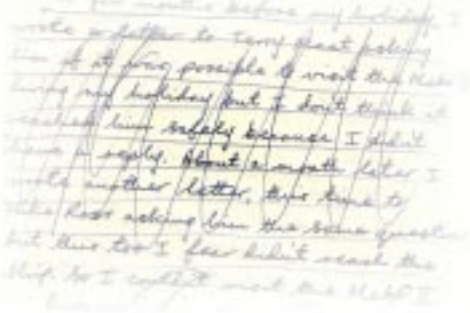 months before my holiday I
wrote a letter to Terry asking
him if it was possible to visit the
during my holiday but I don't think it
reached him safely because I didn't
have a reply. About a month later I
wrote another letter, this time to
asking him the same question
but this too I fear didn't reach the
ship. So I couldn't visit the